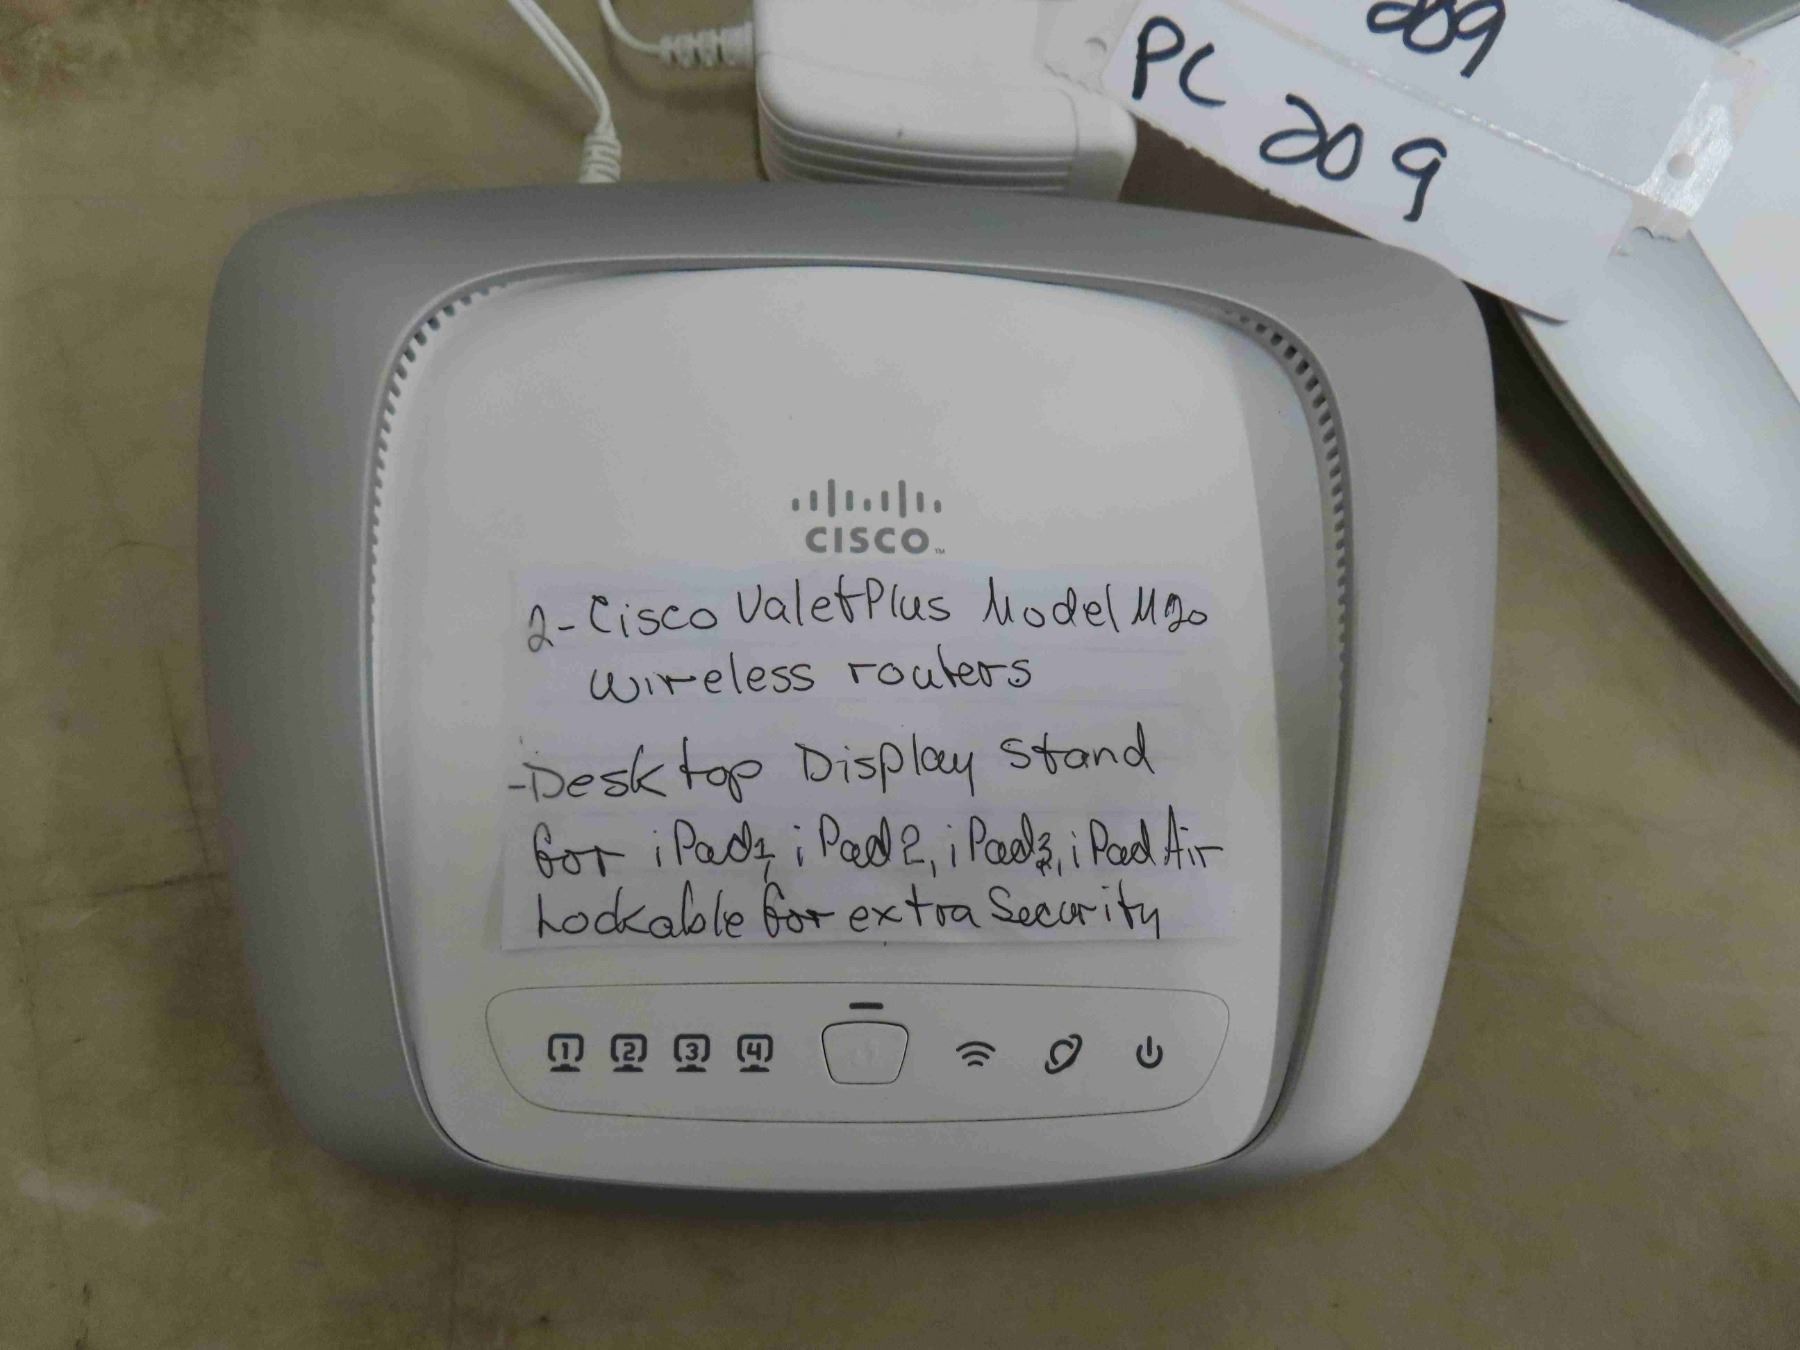 209
PC 209
CISCO™
2-Cisco ValetPlus Model M20
wireless routers
-Desktop Display Stand
for iPad1, iPad2, iPad3, iPad Air
Lockable for extra Security
1 2 3 4